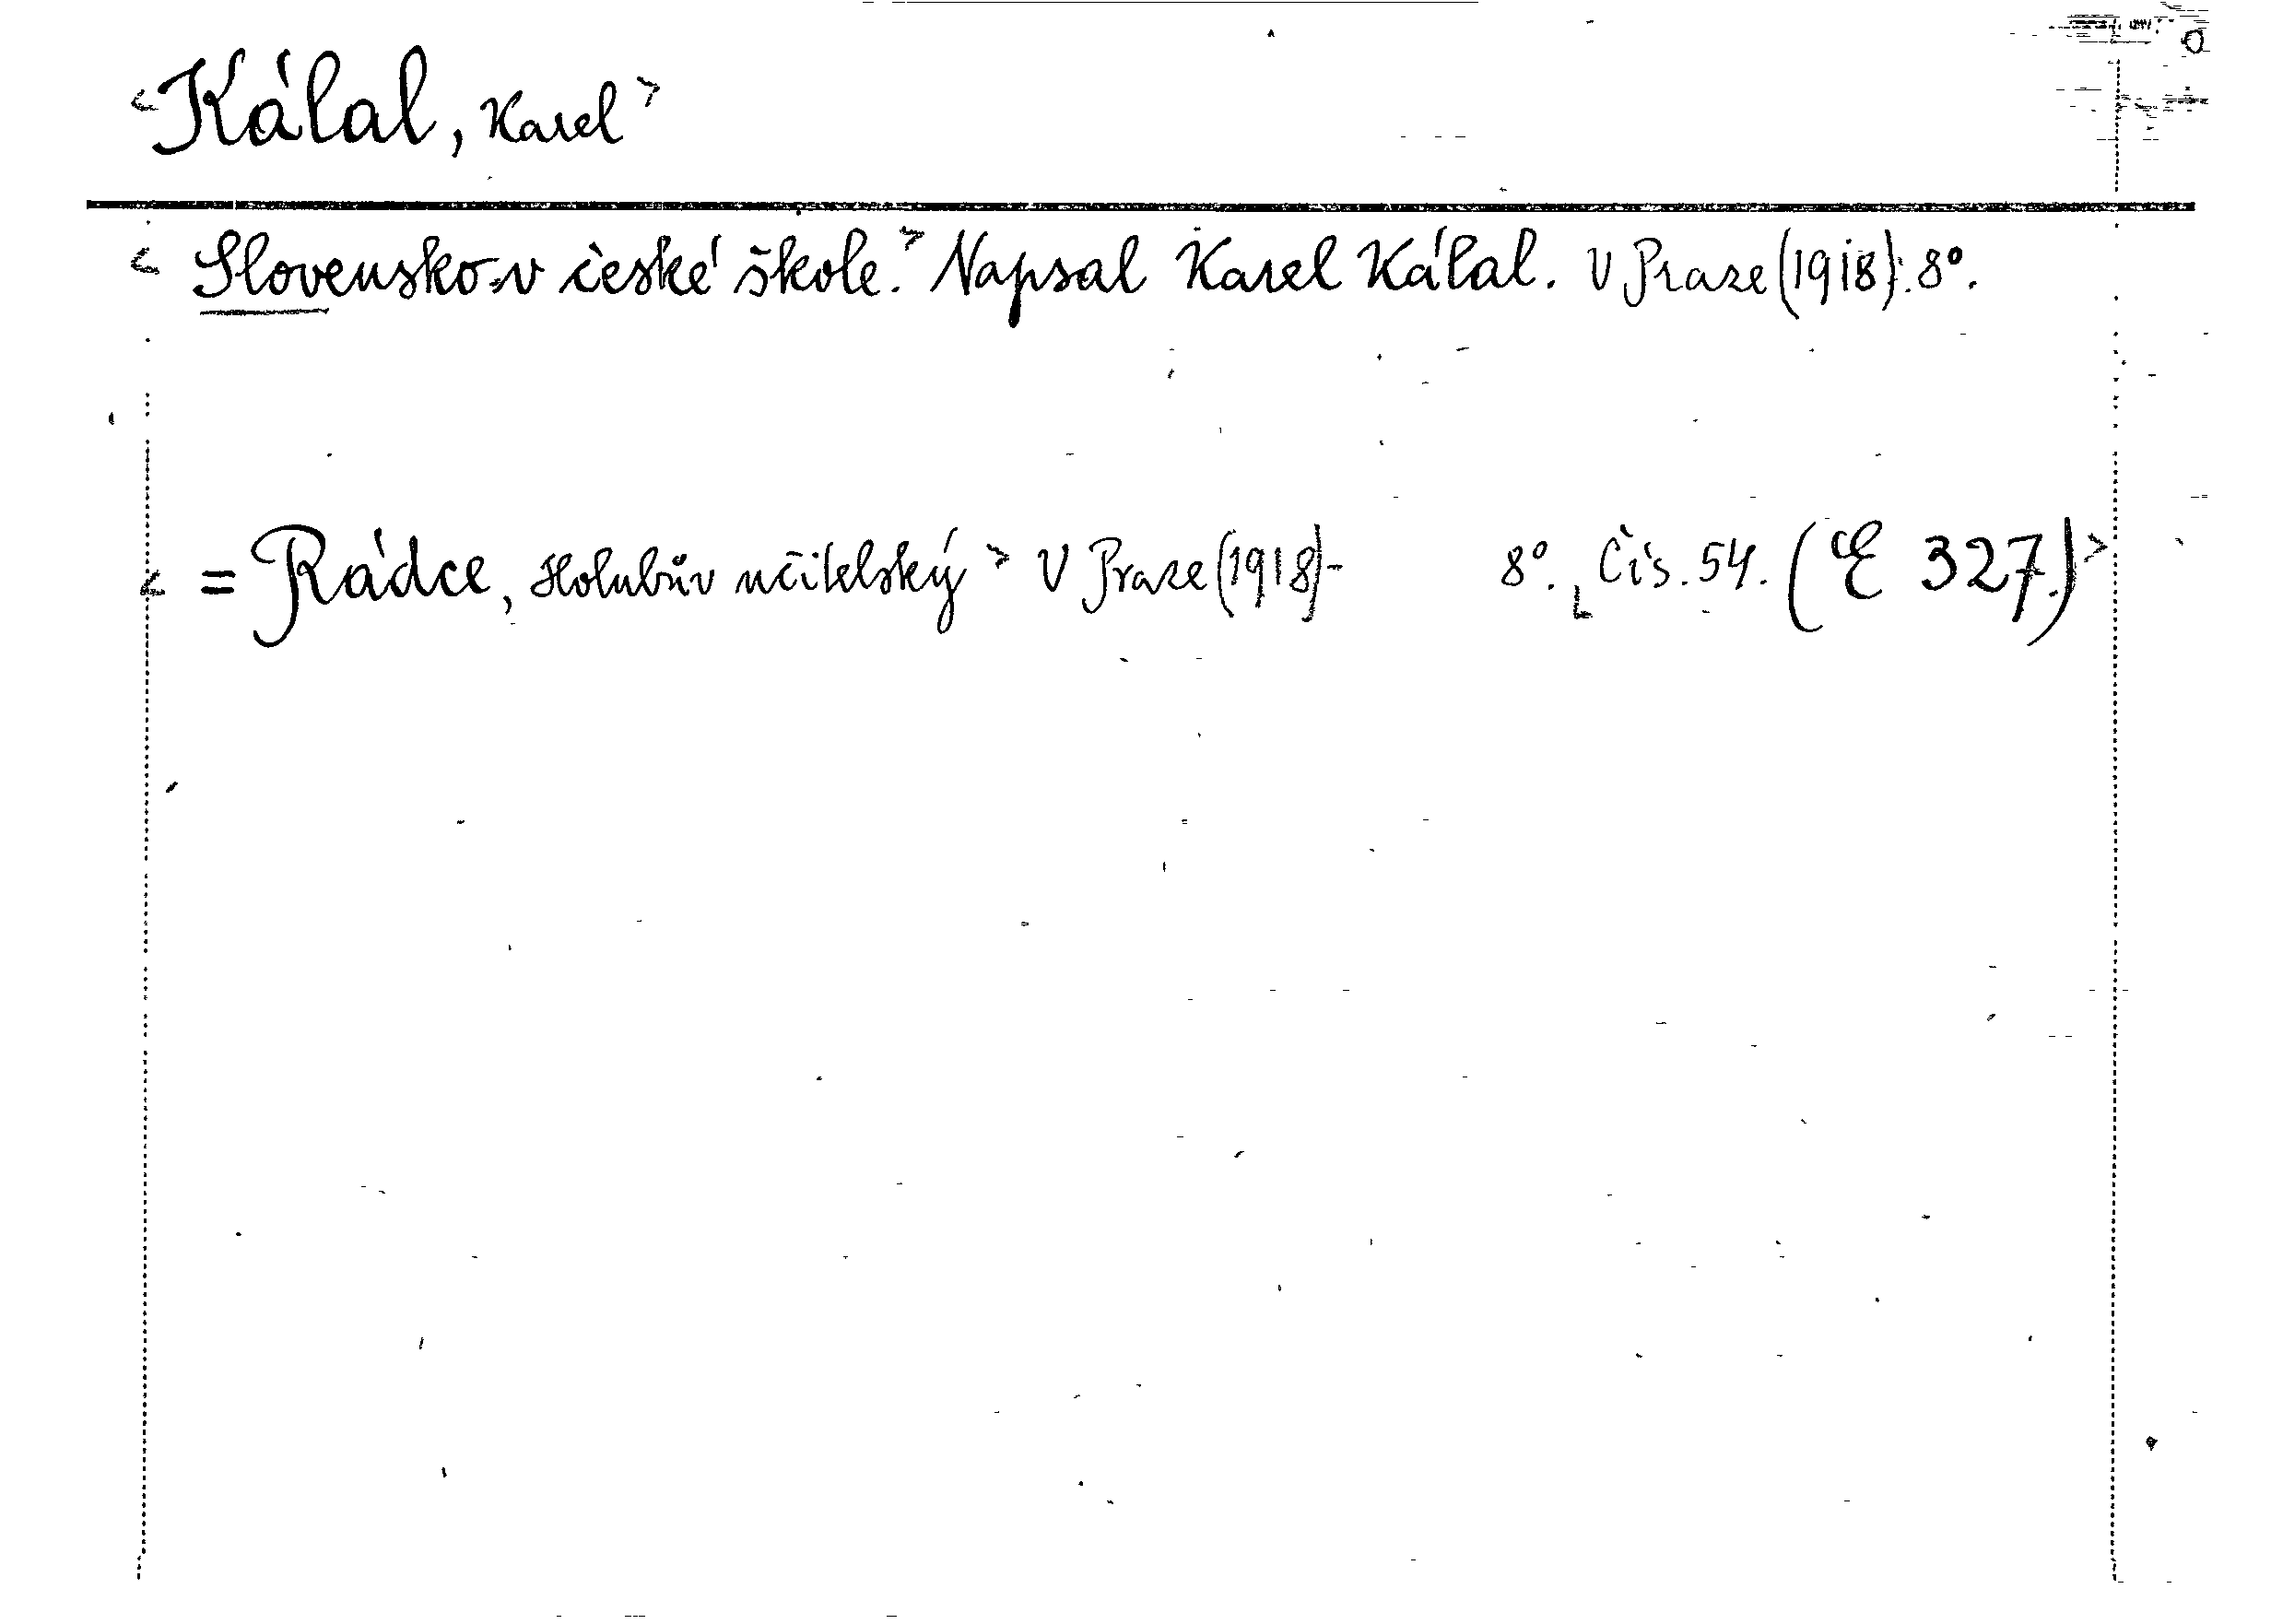 <Kálal, Karel>
<Slovensko v české škole.> Napsal Karel Kálal. V Praze (1918). 8°.
<= Rádce, Holubův učitelský> V Praze (1918)- 8°. Čís. 54. (E 327.)>